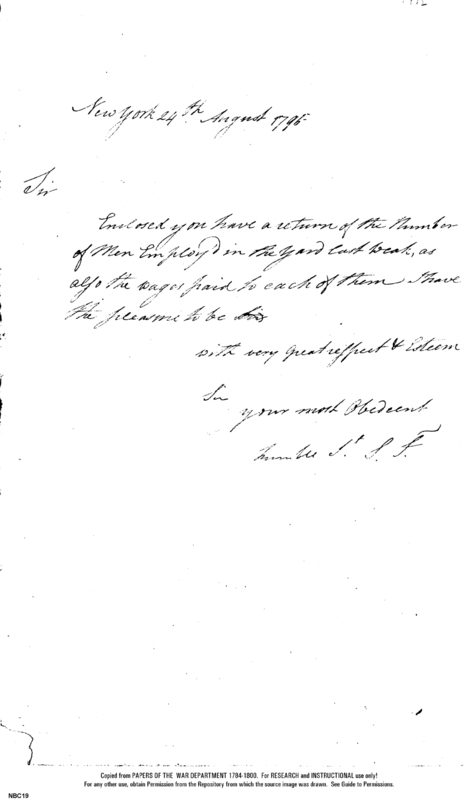 New York 24th August 1795
Sir
Enclosed you have a return of the Number
of Men Employ'd in the Yard last Weak, as
also the wages paid to each of them I have
the pleasure to be
with very great respect & Esteem
Sir
your most Obedient
Humble St. J. F.
Copied from PAPERS OF THE WAR DEPARTMENT 1784-1800. For RESEARCH and INSTRUCTIONAL use only!
For any other use, obtain Permission from the Repository from which the source image was drawn. See Guide to Permissions.
NBC19